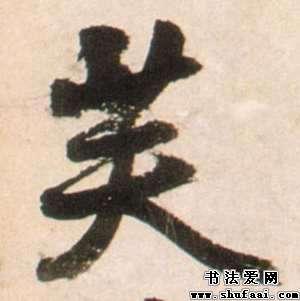 笑
书法爱网
www.shufaai.com